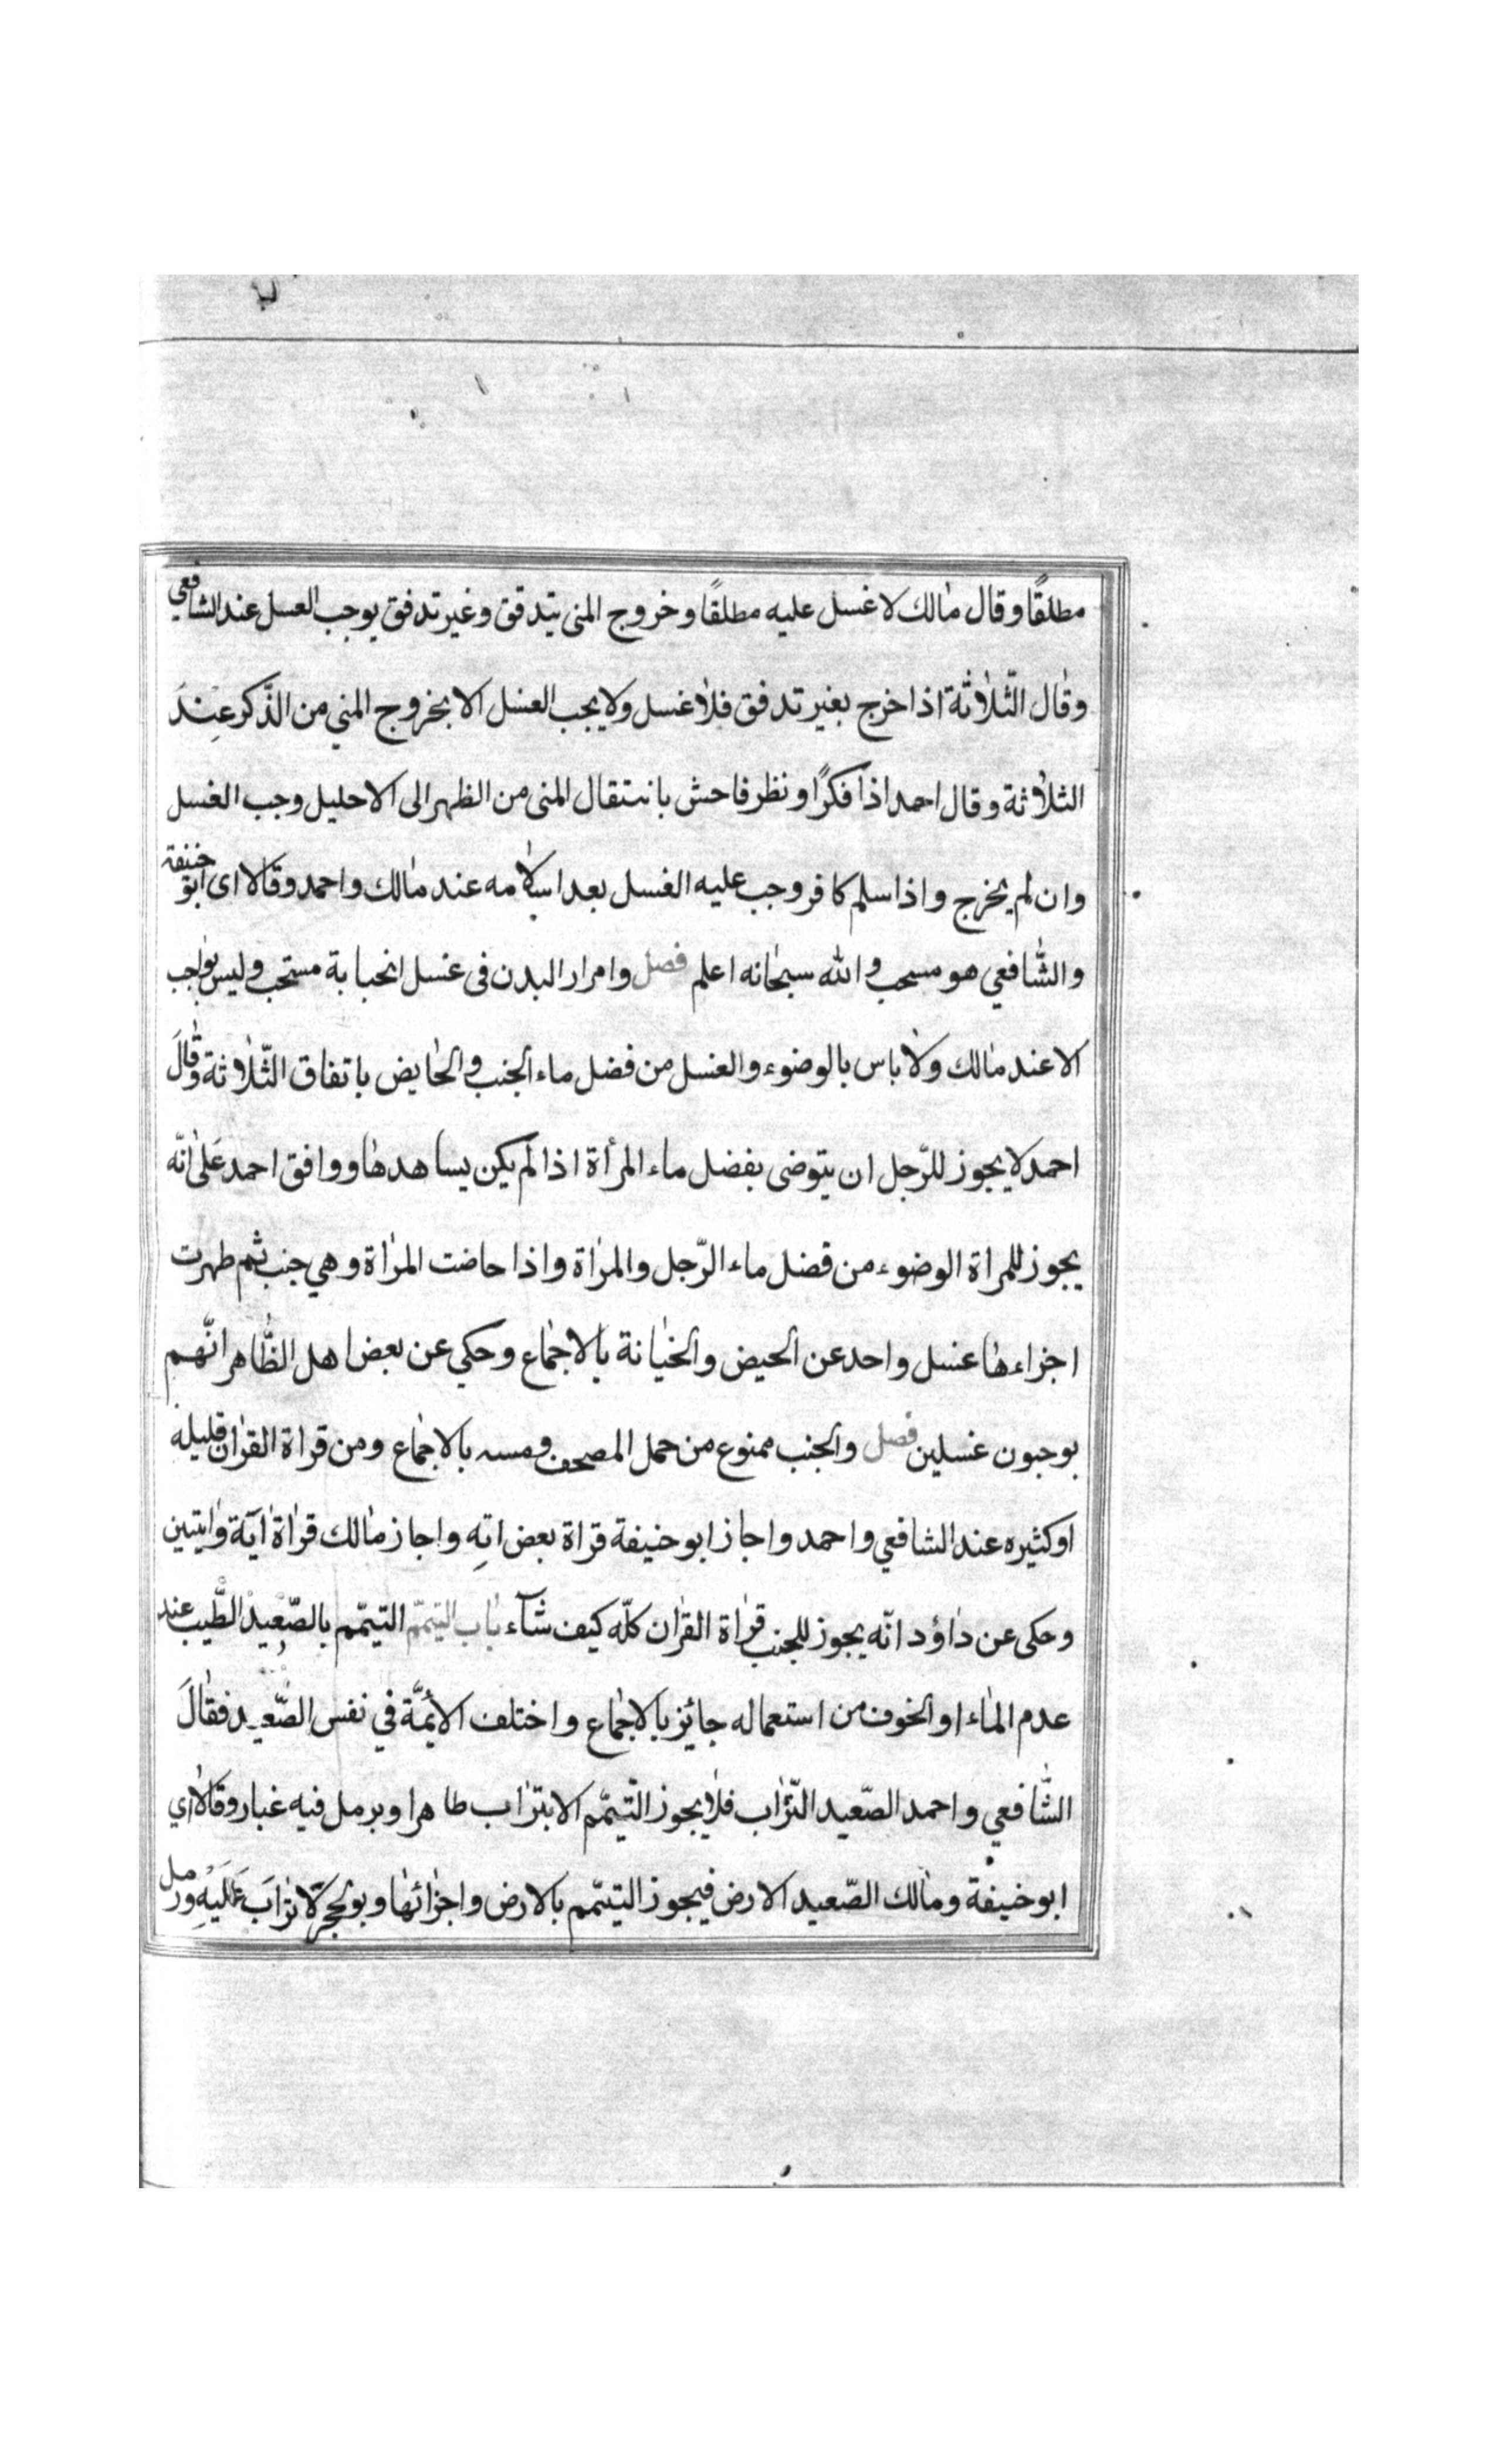 مطلقًا وقال مالك لا غسل عليه مطلقًا وخروج المنى بتدقق وغير تدفق يوجب الغسل عند الشافعي
وقال الثّلاثة اذا خرج بغير تدفق فلا غسل ولا يجب الغسل الا بخروج المني من الذّكر عِندَ
الثلاثة وقال احمد اذا فكرًا ونظر فاحش بانتقال المنى من الظهر الى الاحليل وجب الغسل
وان لم يخرج واذا سلم كافر وجب عليه الغسل بعد اسلامه عند مالك واحمد وقالا اى ابو حنيفة
والشّافعي هو مسحب والله سبحانه اعلم فصل وامرار البدن فى غسل انحبابة مستحب وليس بواجب
الا عند مالك ولا باس بالوضوء والغسل من فضل ماء الجنب والحايض باتفاق الثّلاثة وقالَ
احمد لا يجوز للرّجل ان يتوضى بفضل ماء المرأة اذا لم يكن يساهدها ووافق احمد عَلى انّه
يجوز للمراة الوضوء من فضل ماء الرّجل والمراة واذا حاضت المراة وهي جنب ثم طهرت
اجزاءها غسل واحد عن الحيض والخيانة بالاجماع وحكي عن بعض اهل الظّاهر انّهم
يوجبون غسلين فصل والجنب ممنوع من حمل المصحف ومسه بالاجماع ومن قراة القران قليله
او كثيره عند الشافعي واحمد واجاز ابو حنيفة قراة بعض اتِه واجاز مالك قراة اية وايتين
وحكى عن داؤد انّه يجوز للجنب قراة القران كلّه كيف شآء باب التيمّم التيمّم بالصّعيد الطّيب عند
عدم الماء او الخوف من استعماله جائز بالاجماع واختلف الائمّة في نفس الصّعيد فقالَ
الشّافعي واحمد الصّعيد التّراب فلا يجوز التّيمّم الا بتراب طاهر او برمل فيه غبار وقالا اي
ابو حنيفة ومالك الصّعيد الارض فيجوز التيمّم بالارض واجزائها وبو لحجر لا ترابَ عَلَيْهِ ورمل